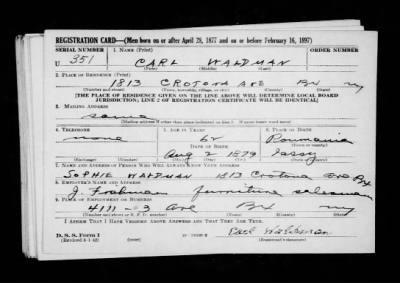 REGISTRATION CARD—(Men born on or after April 28, 1877 and on or before February 16, 1897)
SERIAL NUMBER 1. NAME (Print) ORDER NUMBER
U 351 CARL WALDMAN
(First) (Middle) (Last)
2. PLACE OF RESIDENCE (Print)
1813 CROTONA AVE Bx NY
(Number and street) (Town, township, village, or city) (County) (State)
[THE PLACE OF RESIDENCE GIVEN ON THE LINE ABOVE WILL DETERMINE LOCAL BOARD
JURISDICTION; LINE 2 OF REGISTRATION CERTIFICATE WILL BE IDENTICAL]
3. MAILING ADDRESS
same
[Mailing address if other than place indicated on line 2. If same insert word same]
4. TELEPHONE 5. AGE IN YEARS 6. PLACE OF BIRTH
none 62 Roumania
DATE OF BIRTH
Aug 2 1879 Jassy
(Exchange) (Number) (Mo.) (Day) (Yr.) (State or country)
7. NAME AND ADDRESS OF PERSON WHO WILL ALWAYS KNOW YOUR ADDRESS
SOPHIE WALDMAN 1813 Crotona Ave Bx
8. EMPLOYER'S NAME AND ADDRESS
furniture salesman
9. PLACE OF EMPLOYMENT OR BUSINESS
4111 - 3 Ave Bx NY
(Number and street or R. F. D. number) (Town) (County) (State)
I AFFIRM THAT I HAVE VERIFIED ABOVE ANSWERS AND THAT THEY ARE TRUE.
D. S. S. Form 1
(Revised 4-1-42) Carl Waldman
(Registrant's signature)